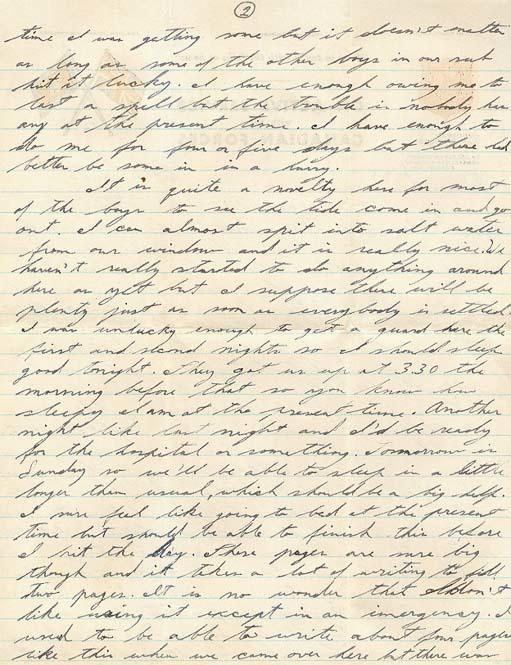 2
time I was getting some but it doesn't matter
as long as some of the other boys in our sub
hit it lucky. I have enough owing me to
last a spell but the trouble is nobody has
any at the present time. I have enough to
do me for four or five days but there had
better be some in in a hurry.
It is quite a novelty here for most
of the boys to see the tide come in and go
out. I can almost spit into salt water
from our window and it is really nice. We
haven't really started to do anything around
here as yet but I suppose there will be
plenty just as soon as everybody is settled.
I was unlucky enough to get a guard here the
first and second nights so I should sleep
good tonight. They got us up at 3.30 the
morning before that so you know how
sleepy I am at the present time. Another
night like last night and I'd be ready
for the hospital or something. Tomorrow is
Sunday so we'll be able to sleep in a little
longer than usual, which should be a big help.
I sure feel like going to bed at the present
time but should be able to finish this before
I hit the hay. These pages are sure big
though and it takes a lot of writing to fill
two pages. It is no wonder that I don't
like using it except in an imergency. I
used to be able to write about four pages
like this when we came over here but there was